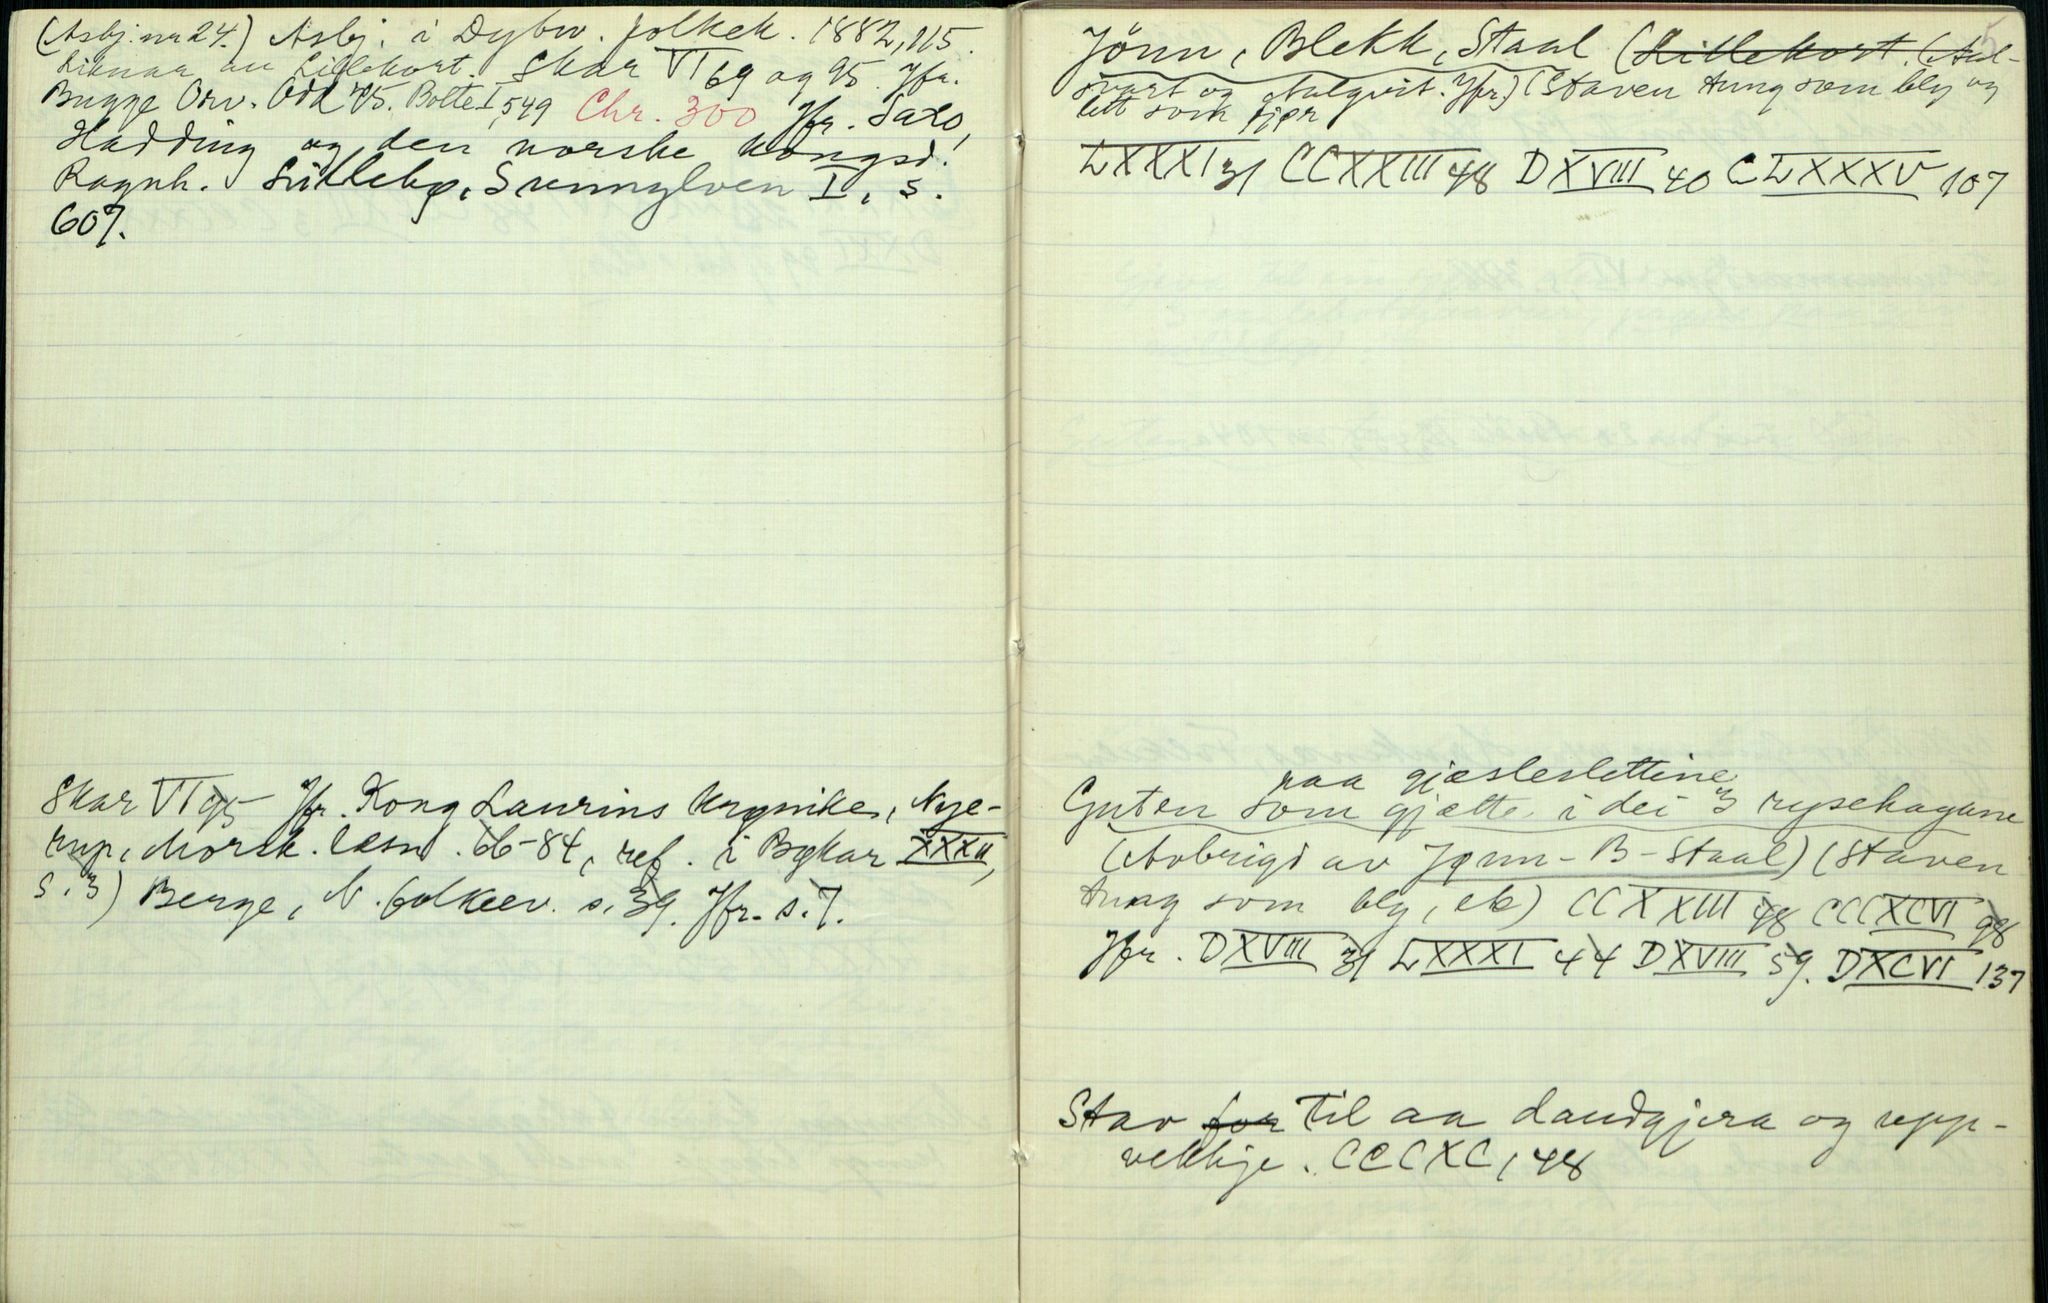 (Asbj. nr 24.) Asbj. i Dybw. folkek. 1882, 115.
Liknar an Lillekort. Skar VI 69 og 95. Jfr.
Bugge Orv. Odd 75. Bolte I, 549 Chr. 300 Jfr. Saxo,
Hadding og den norske kongsd.
Ragnh. Lillebø, Sunnylven I, s.
607.
Skar VI 95 Jfr. Kong Laurins krønike, Nye-
rup, Morsk. læsn. 66-84, ref. i Bøkar XXXII,
s. 3) Berge, N. folkeev. s. 39. Jfr. s. 7.
5
Jönn, Blekk, Staal (Lillekort. (Aal-
svart og Aalqvit. Jfr.) (Staven tung som bly og
lett som fjør
LXXXI 31 CCXXIII 48 DXVIII 40 CLXXXV 107
paa gjæsleslettine
Guten som gjætte i dei 3 rysehagane
(Avbrigd av Jønn-B-Staal) (Staven
tung som bly, etc) CCXXIII 48 CCCXCVI 98
Jfr. DXVIII 31 LXXXI 44 DXVIII 59. DXCVI 137
Stav for til aa daudgjera og upp-
vekkje. CCCXC, 48